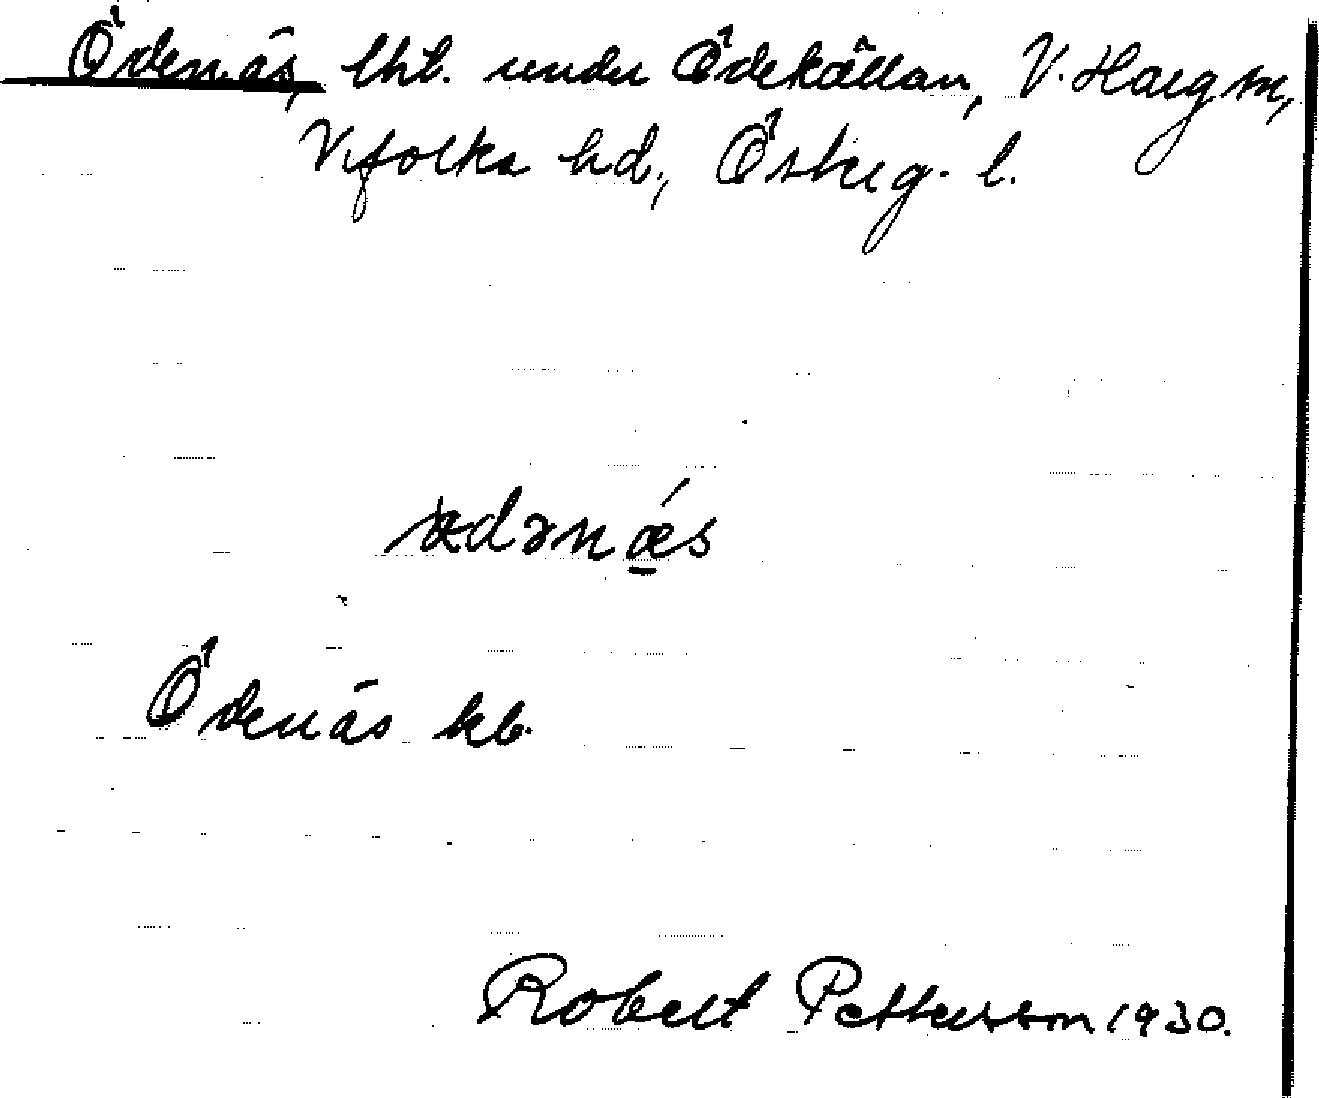 Ödenäs, lht. under Ödekällan, V. Harg sn,
Vifolka hd., Österg. l.
ædənæ̀s
Ödenäs kb.
Robert Pettersson 1930.